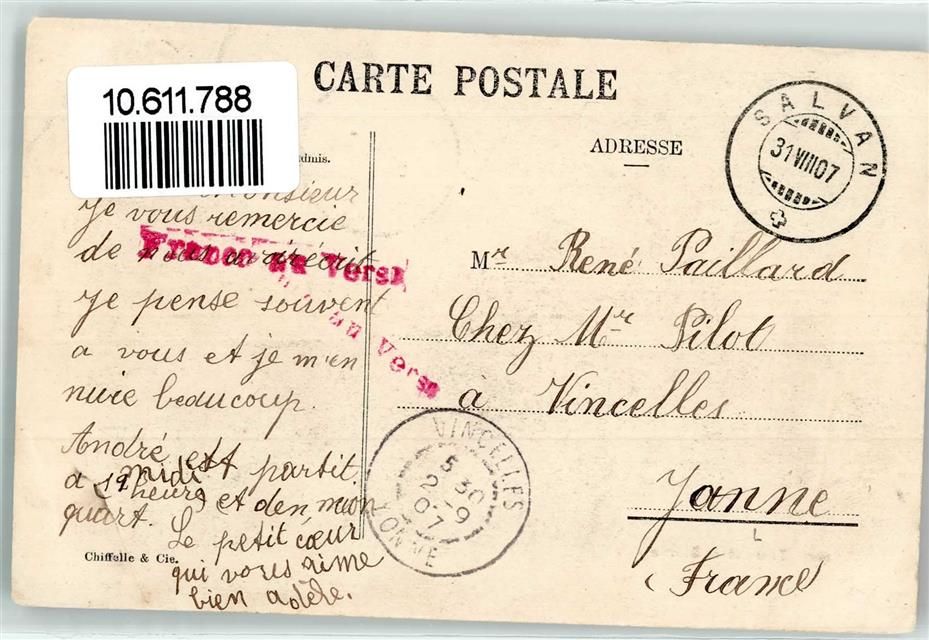 CARTE POSTALE
10.611.788
ADRESSE
SALVAN
31 VIII 07
Monsieur
Je vous remercie
de nous avoir écrit
Je pense souvent
a vous et je m'en
nuie beaucoup.
André est partit
a midi
heure et
quart.
Le petit cœur
qui vous aime
bien adèle.
Franco au Verso
au Verso
Mr René Paillard
Chez Mr Pilot
à Vincelles
Yonne
France
VINCELLES
5 30
2 -9
07
YONNE
Chiffelle & Cie.